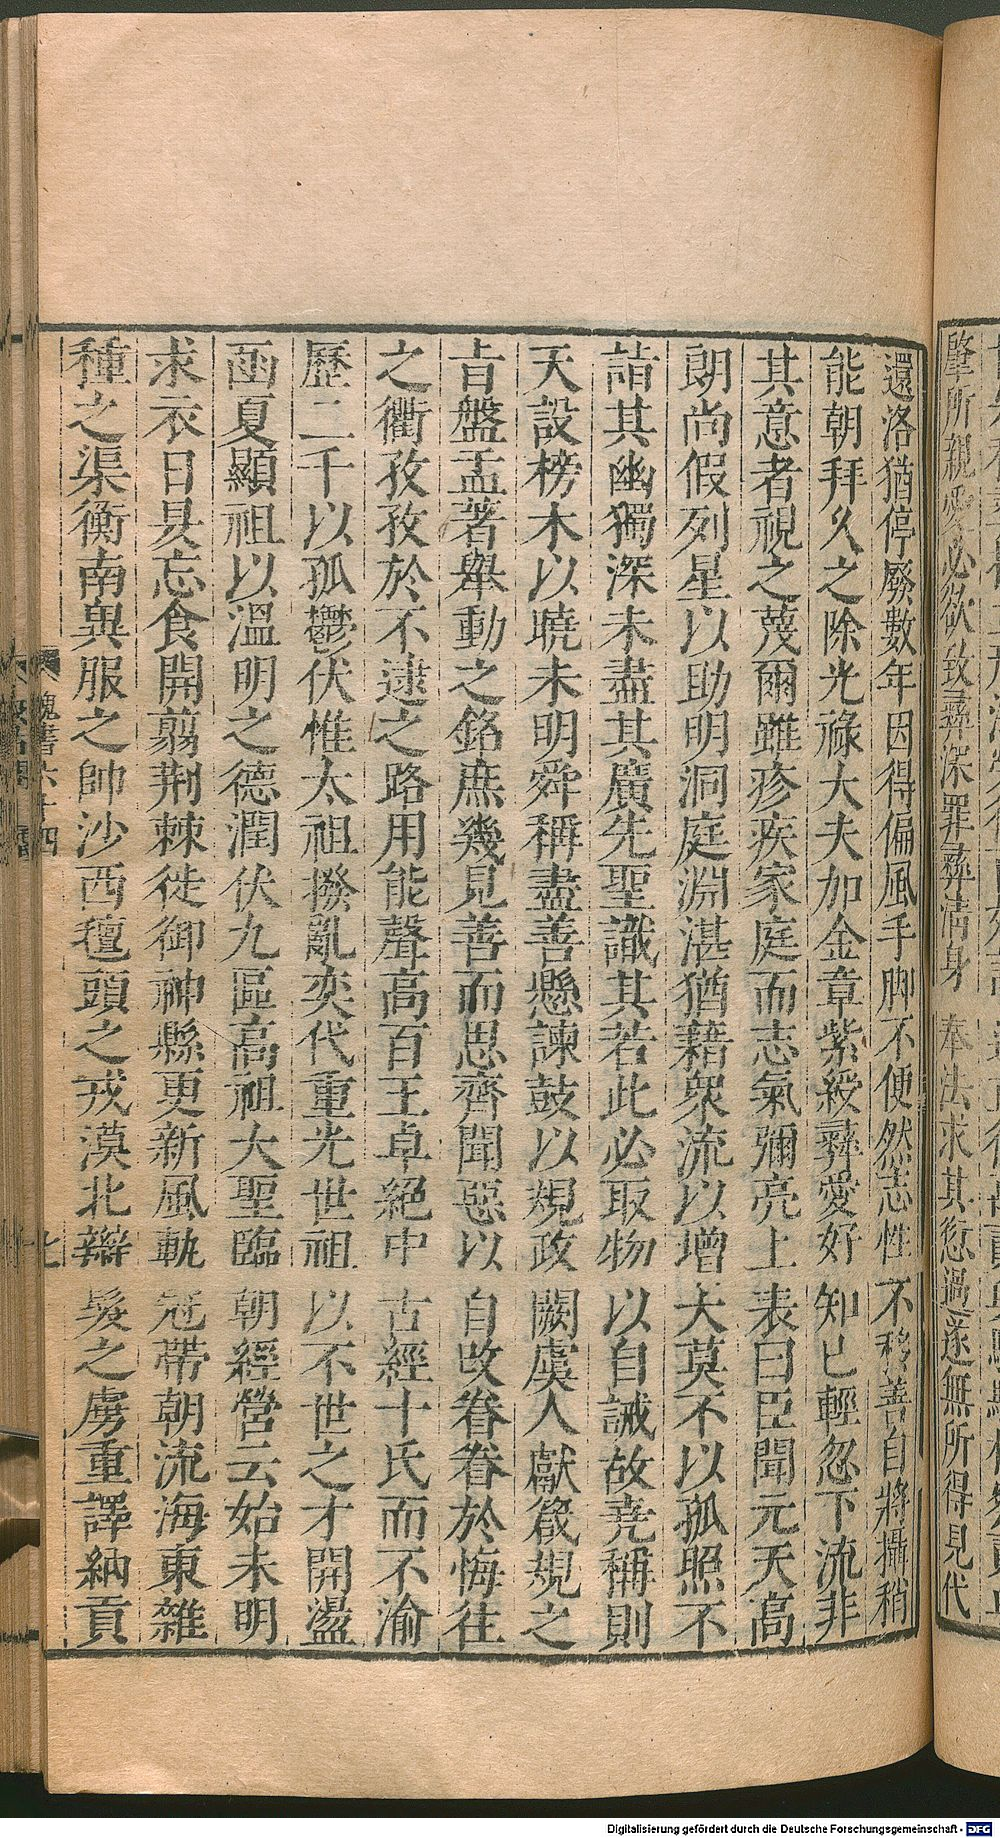 還洛猶停廢數年因得偏風手脚不便然志性不移善自將攝稍
能朝拜久之除光祿大夫加金章紫綬彞愛好知已輕忽下流非
其意者視之蔑爾雖疹疾家庭而志氣彌亮上表曰臣聞元天高
朗尚假列星以助明洞庭淵湛猶藉衆流以增大莫不以孤照不
詣其幽獨深未盡其廣先聖識其若此必取物以自誡故堯稱則
天設榜木以曉未明舜稱盡善懸諫鼓以規政闕虞人獻箴規之
㫖盤盂著舉動之銘庶幾見善而思齊聞惡以自改眷眷於悔往
之衢孜孜於不逮之路用能聲高百王卓絕中古經十氏而不渝
歷二千以孤鬱伏惟太祖撥亂奕代重光世祖以不世之才開盪
函夏顯祖以溫明之德潤伏九區高祖大聖臨朝經營云始未明
求衣日昃忘食開翦荆棘徙御神縣更新風軌冠帶朝流海東雜
種之渠衡南異服之帥沙西氊頭之戎漠北辮髮之虜重譯納貢
魏書六十四
七
肇所親愛必欲致彞深罪彞清身奉法求其愆過遂無所得見代
Digitalisierung gefördert durch die Deutsche Forschungsgemeinschaft - DFG